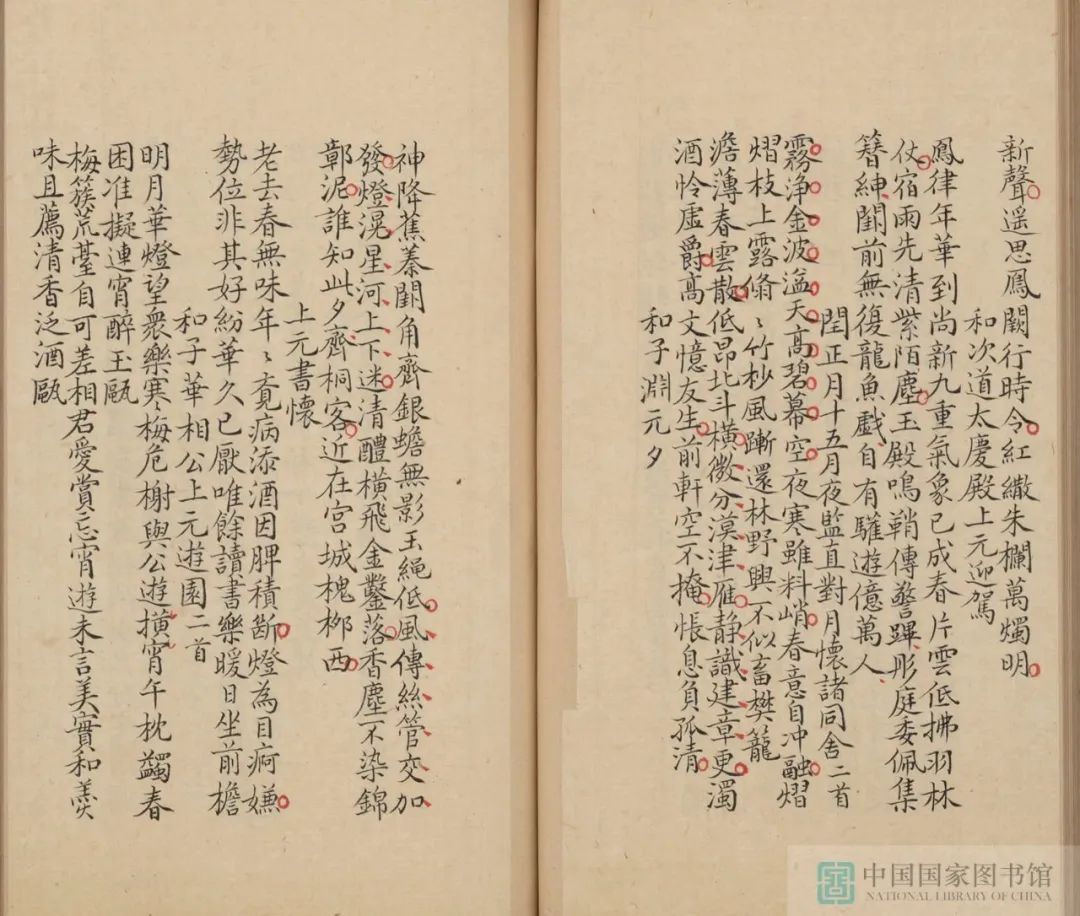 新聲遥思鳳闕行時令紅繖朱欄萬燭明
和次道太慶殿上元迎駕
鳳律年華到尚新九重氣象已成春片雲低拂羽林
仗宿雨先清紫陌塵玉殿鳴鞘傳警蹕彤庭委佩集
簪紳閶前無復龍魚戲自有驩遊億萬人
閏正月十五月夜監直對月懷諸同舍二首
霧浄金波溢天高碧幕空夜寒雖料峭春意自冲融熠
熠枝上露翛〻竹杪風蹔還林野興不似畜樊籠
澹薄春雲散低昂北斗橫微分漠津雁静識建章更濁
酒怜虚爵高文憶友生前軒空不掩悵息負孤清
和子淵元夕
神降蕉蓁閶角齊銀蟾無影玉繩低風傳絲管交加
發燈滉星河上下迷清醴橫飛金鑿落香塵不染錦
鄣泥誰知此夕齊桐客近在宫城槐柳西
上元書懷
老去春無味年〻覓病添酒因脾積斷燈為目疴嫌
勢位非其好紛華久已厭唯餘讀書樂暖日坐前檐
和子華相公上元遊園二首
明月華燈望衆樂寒梅危榭與公遊橫宵午枕蠲春
困准擬連宵醉玉甌
梅簇荒臺自可差相君愛賞忘宵遊未言美實和羹
味且薦清香泛酒甌
中国国家图书馆
NATIONAL LIBRARY OF CHINA